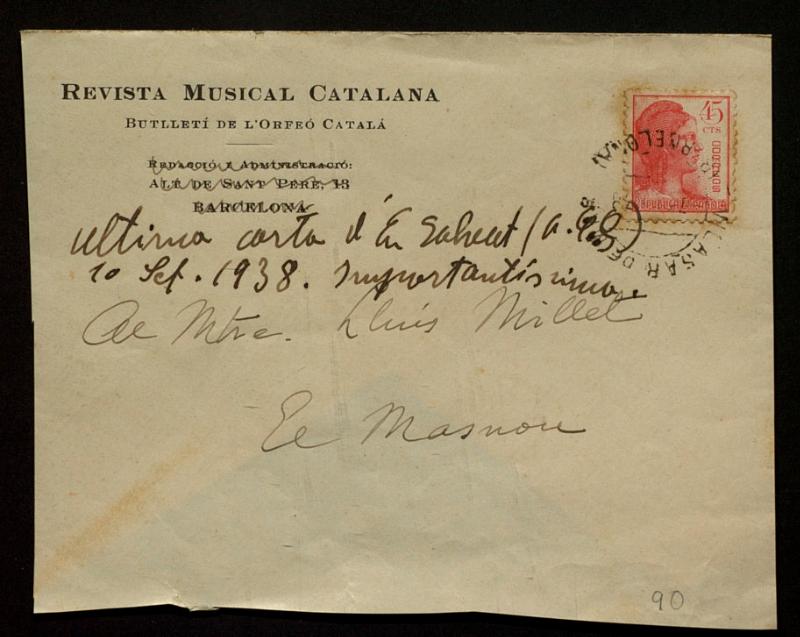 REVISTA MUSICAL CATALANA
BUTLLETÍ DE L'ORFEÓ CATALÁ
REDACCIÓ I ADMINISTRACIÓ:
ALT DE SANT PERE, 13
BARCELONA
45
CTS
CORREOS
REPUBLICA ESPAÑOLA
ultima carta d'En Salvat
10 Set. 1938. importantíssima.
Al Mtre. Lluis Millet
El Masnou
90